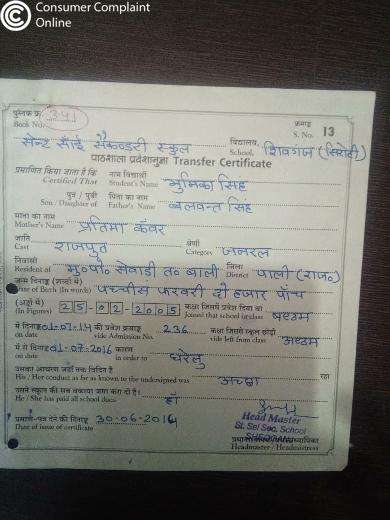 Consumer Complaint
Online
पुस्तक क्र. 341 क्रमाङ्क
Book No. S. No. 13
सेन्ट साँई सैकण्डरी स्कुल विद्यालय, शिवगंज (सिरोही)
School,
पाठशाला प्रवेशानुज्ञा Transfer Certificate
प्रमाणित किया जाता है कि नाम विद्यार्थी
Certified That Student's Name भुमिका सिंह
पुत्र / पुत्री पिता का नाम
Son / Daughter of Father's Name बलवन्त सिंह
माता का नाम
Mother's Name प्रतिमा कँवर
जाति श्रेणी
Cast राजपुत Category जनरल
निवासी जिला
Resident of मु०पो० सेवाडी त० बाली District पाली (राज०)
जन्म दिनाङ्क (शब्दों में)
Date of Birth (In words) पच्चीस फरवरी दो हजार पाँच
(अङ्कों में) कक्षा जिसमें प्रवेश दिया था
(In Figures) 25-02-2005 Joined that school in class
में दिनाङ्क 01-07-14 को प्रवेश क्रमाङ्क 236 कक्षा जिससे स्कूल छोड़ी
on date vide Admission No. vide left from class
में से दिनाङ्क 01-07-2016 कारण
on date in order to घरेलु
उसका आचरण जहाँ तक विदित है
His / Her conduct as far as known to the undersigned was अच्छा रहा
उसने स्कूल की सब बकाया जमा करा दी है।
He / She has paid all school dues हाँ
प्रमाण-पत्र देने की दिनाङ्क 30-06-2016
Date of issue of certificate
Head Master
St. Sai Sec. School
SHEOGANJ
प्रधानाध्यापक/प्रधानाध्यापिका
Headmaster / Headmistress